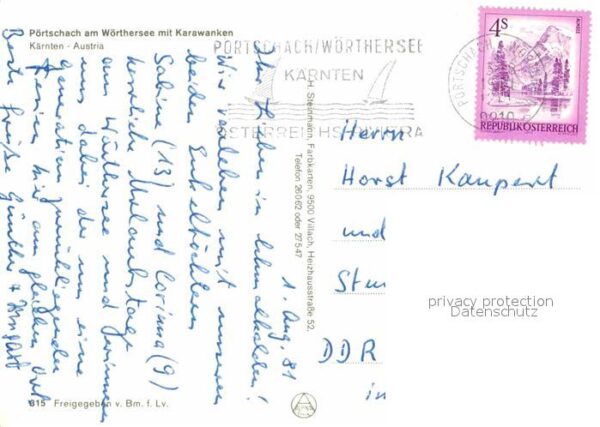 Pörtschach am Wörthersee mit Karawanken
Kärnten - Austria
PÖRTSCHACH/WÖRTHERSEE
KÄRNTEN
ÖSTERREICHS RIVIERA
PÖRTSCHACH
9210
4s
ALMSEE
REPUBLIK ÖSTERREICH
1. Aug. 81
Ihr Lieben in
Wir verleben mit unseren
beiden Enkeltöchtern
Sabine (13) und Corinna (9)
herrliche Urlaubstage
am Wörthersee und
uns dabei der um eine
Generation zurückliegenden
Ferien hier am gleichen Ort
Beste Grüße Günther +
H. Steinmann, Farbkarten, 9500 Villach, Heizhausstraße 52,
Telefon 26062 oder 27547
Herrn
Horst Kaupert
und
DDR
in
privacy protection
Datenschutz
815 Freigegeben v. Bm. f. Lv.